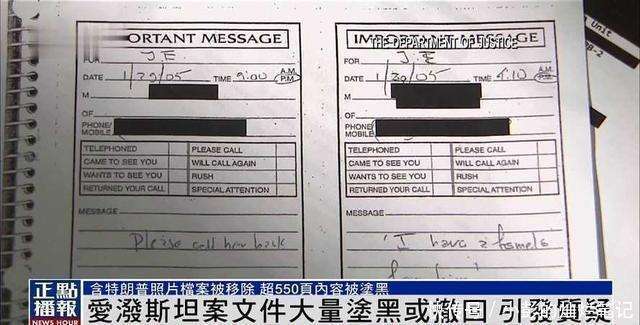 ORTANT MESSAGE
FOR J.E
DATE 1/20/05 TIME 9:00 A.M. P.M.
M
OF
PHONE/ MOBILE
TELEPHONED PLEASE CALL
CAME TO SEE YOU WILL CALL AGAIN
WANTS TO SEE YOU RUSH
RETURNED YOUR CALL SPECIAL ATTENTION
MESSAGE
Please call her back
THE DEPARTMENT OF JUSTICE
FOR J.E
DATE 1/20/05 TIME A.M. P.M.
M
OF
PHONE/ MOBILE
TELEPHONED PLEASE CALL
CAME TO SEE YOU WILL CALL AGAIN
WANTS TO SEE YOU RUSH
RETURNED YOUR CALL SPECIAL ATTENTION
MESSAGE
"I have a female
Unit
正點播報
NEWS HOUR
含特朗普照片檔案被移除 超550頁內容被塗黑
愛潑斯坦案文件大量塗黑或撤回 引發質疑